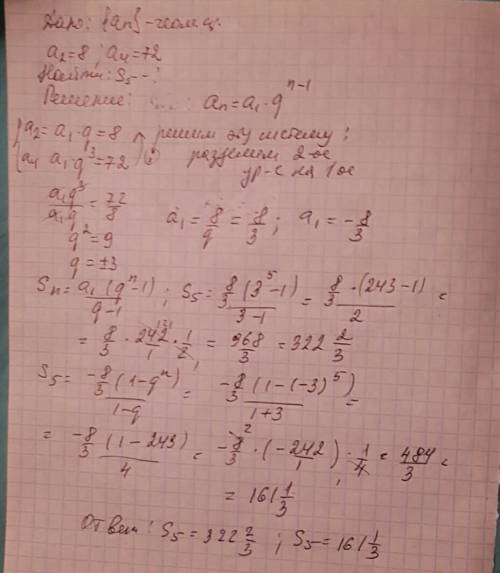 Дано: {an} - геом. ц.
a₂=8; a₄=72
Найти: S₅ - ;
Решение: an = a₁·q^(n-1)
{a₂ = a₁·q = 8 решим эту систему:
{a₄ a₁·q³ = 72 разделим 2-ое
ур-е на 1ое
a₁q³/a₁q = 72/8
a₁ = 8/q = 8/3; a₁ = -8/3
q² = 9
q = ±3
Sn = a₁(qⁿ-1)/(q-1); S₅ = 8/3(3⁵-1)/(3-1) = 8/3·(243-1)/2 =
= 8/3 · 242/1 · 1/2 = 968/3 = 322 2/3
S₅ = -8/3(1-qⁿ)/(1-q) = -8/3(1-(-3)⁵)/(1+3) =
= -8/3(1-243)/4 = -8/3·(-242/1)·1/4 = 484/3 =
= 161 1/3
Ответ: S₅ = 322 2/3; S₅ = 161 1/3